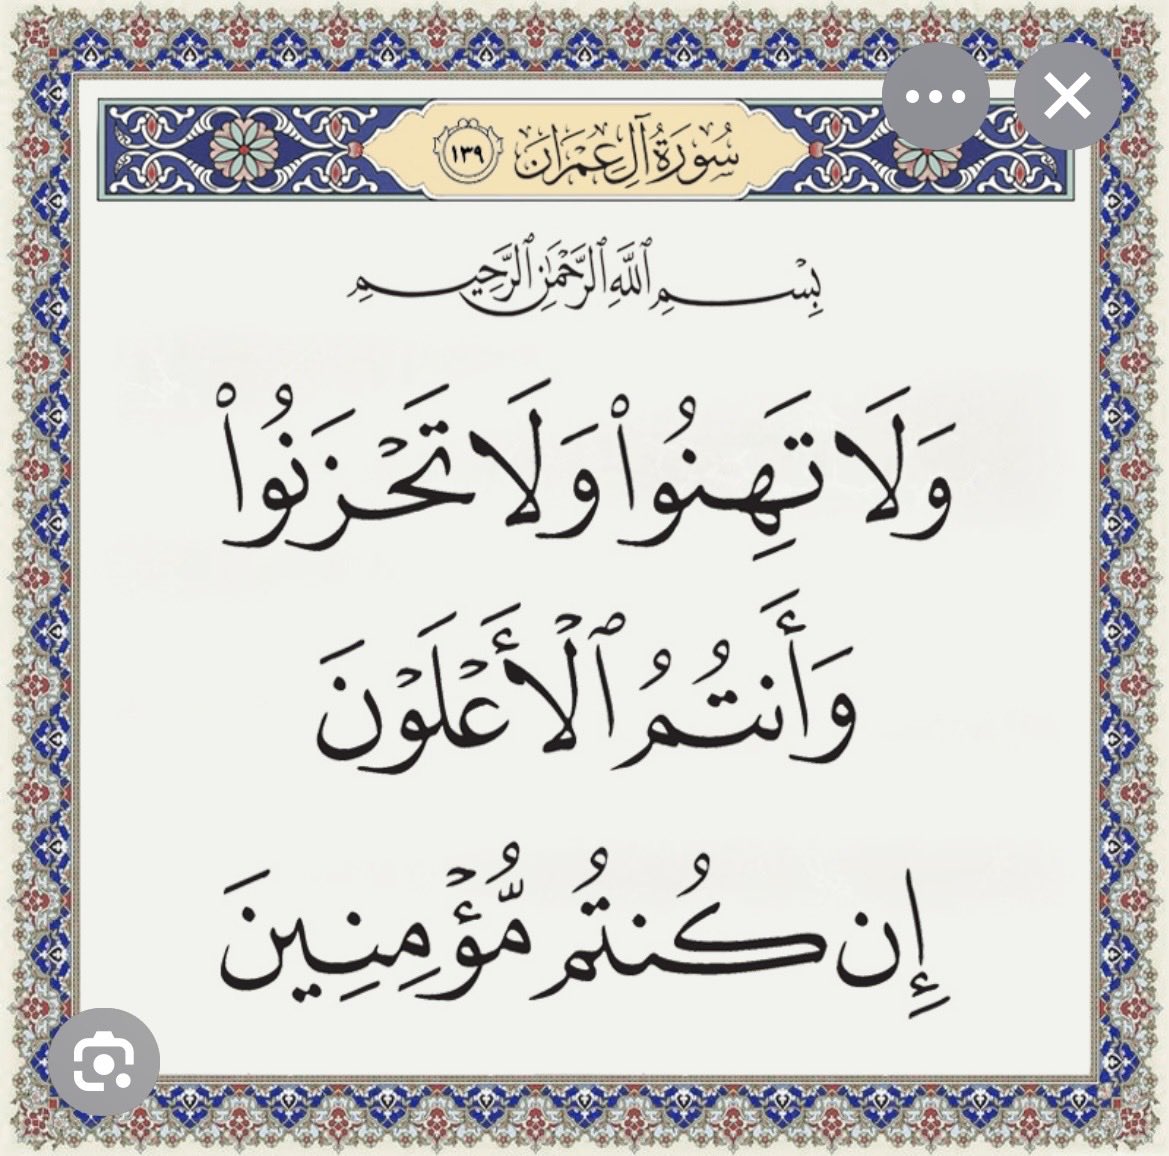 سُورَةُ آلِ عِمْرَان ١٣٩
بِسْمِ ٱللَّهِ ٱلرَّحْمَٰنِ ٱلرَّحِيمِ
وَلَا تَهِنُوا۟ وَلَا تَحْزَنُوا۟
وَأَنتُمُ ٱلْأَعْلَوْنَ
إِن كُنتُم مُّؤْمِنِينَ